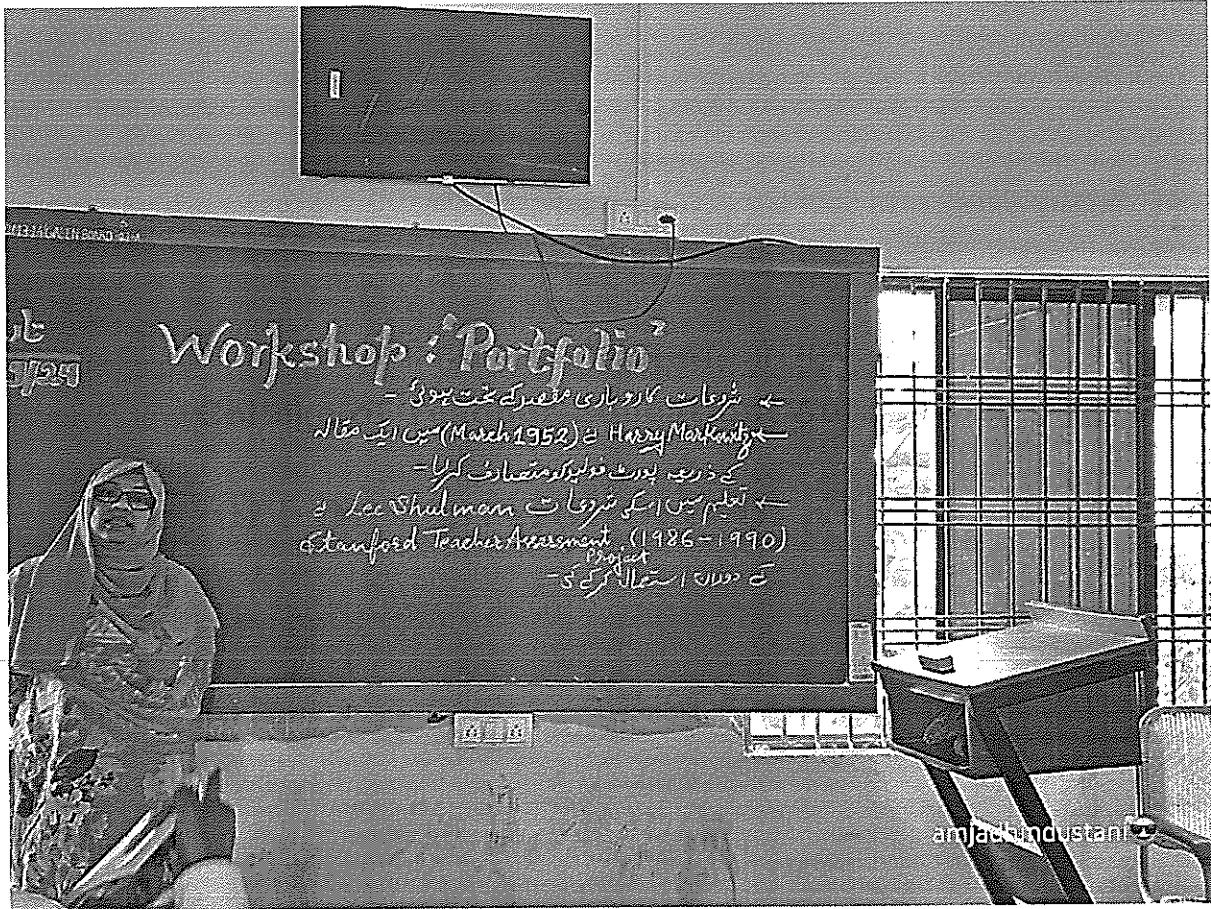 Workshop : "Portfolio"
← شروعات کاروباری مقصد کے تحت ہوئی -
← Harry Markowitz نے (March 1952) میں ایک مقالہ
کے ذریعہ پورٹ فولیو کو متعارف کرایا -
← تعلیم میں اسکی شروعات Lee Shulman نے
Stanford Teacher Assessment (1986-1990)
Project
کے دوران استعمال کر کے کی -
amjadhindustani